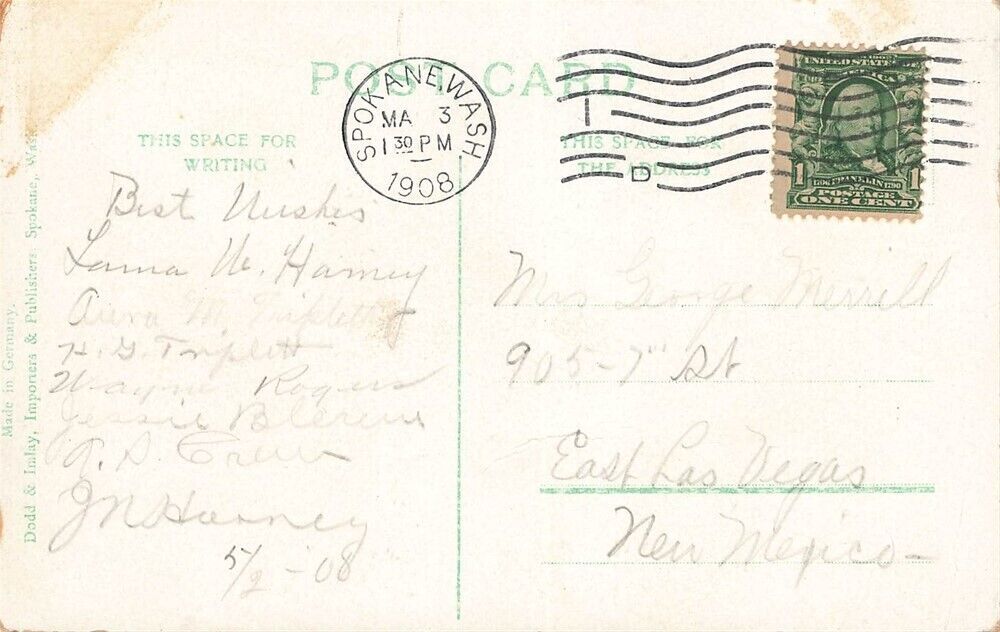 POST CARD
SPOKANE, WASH
MA 3
1 30 PM
1908
D
UNITED STATES OF
1706 FRANKLIN 1790
1 1
POSTAGE
ONE CENT
THIS SPACE FOR
WRITING
Best Wishes
W. Harney
M. Triplett
H. G. Triplett
Wayne Rogers
Jessie B
J N Harney
5/2 - 08
THIS SPACE FOR
THE ADDRESS
Mrs George Merrill
905 - 7" St
East Las Vegas
New Mexico -
Made in Germany.
Dodd & Imlay, Importers & Publishers, Spokane, Was